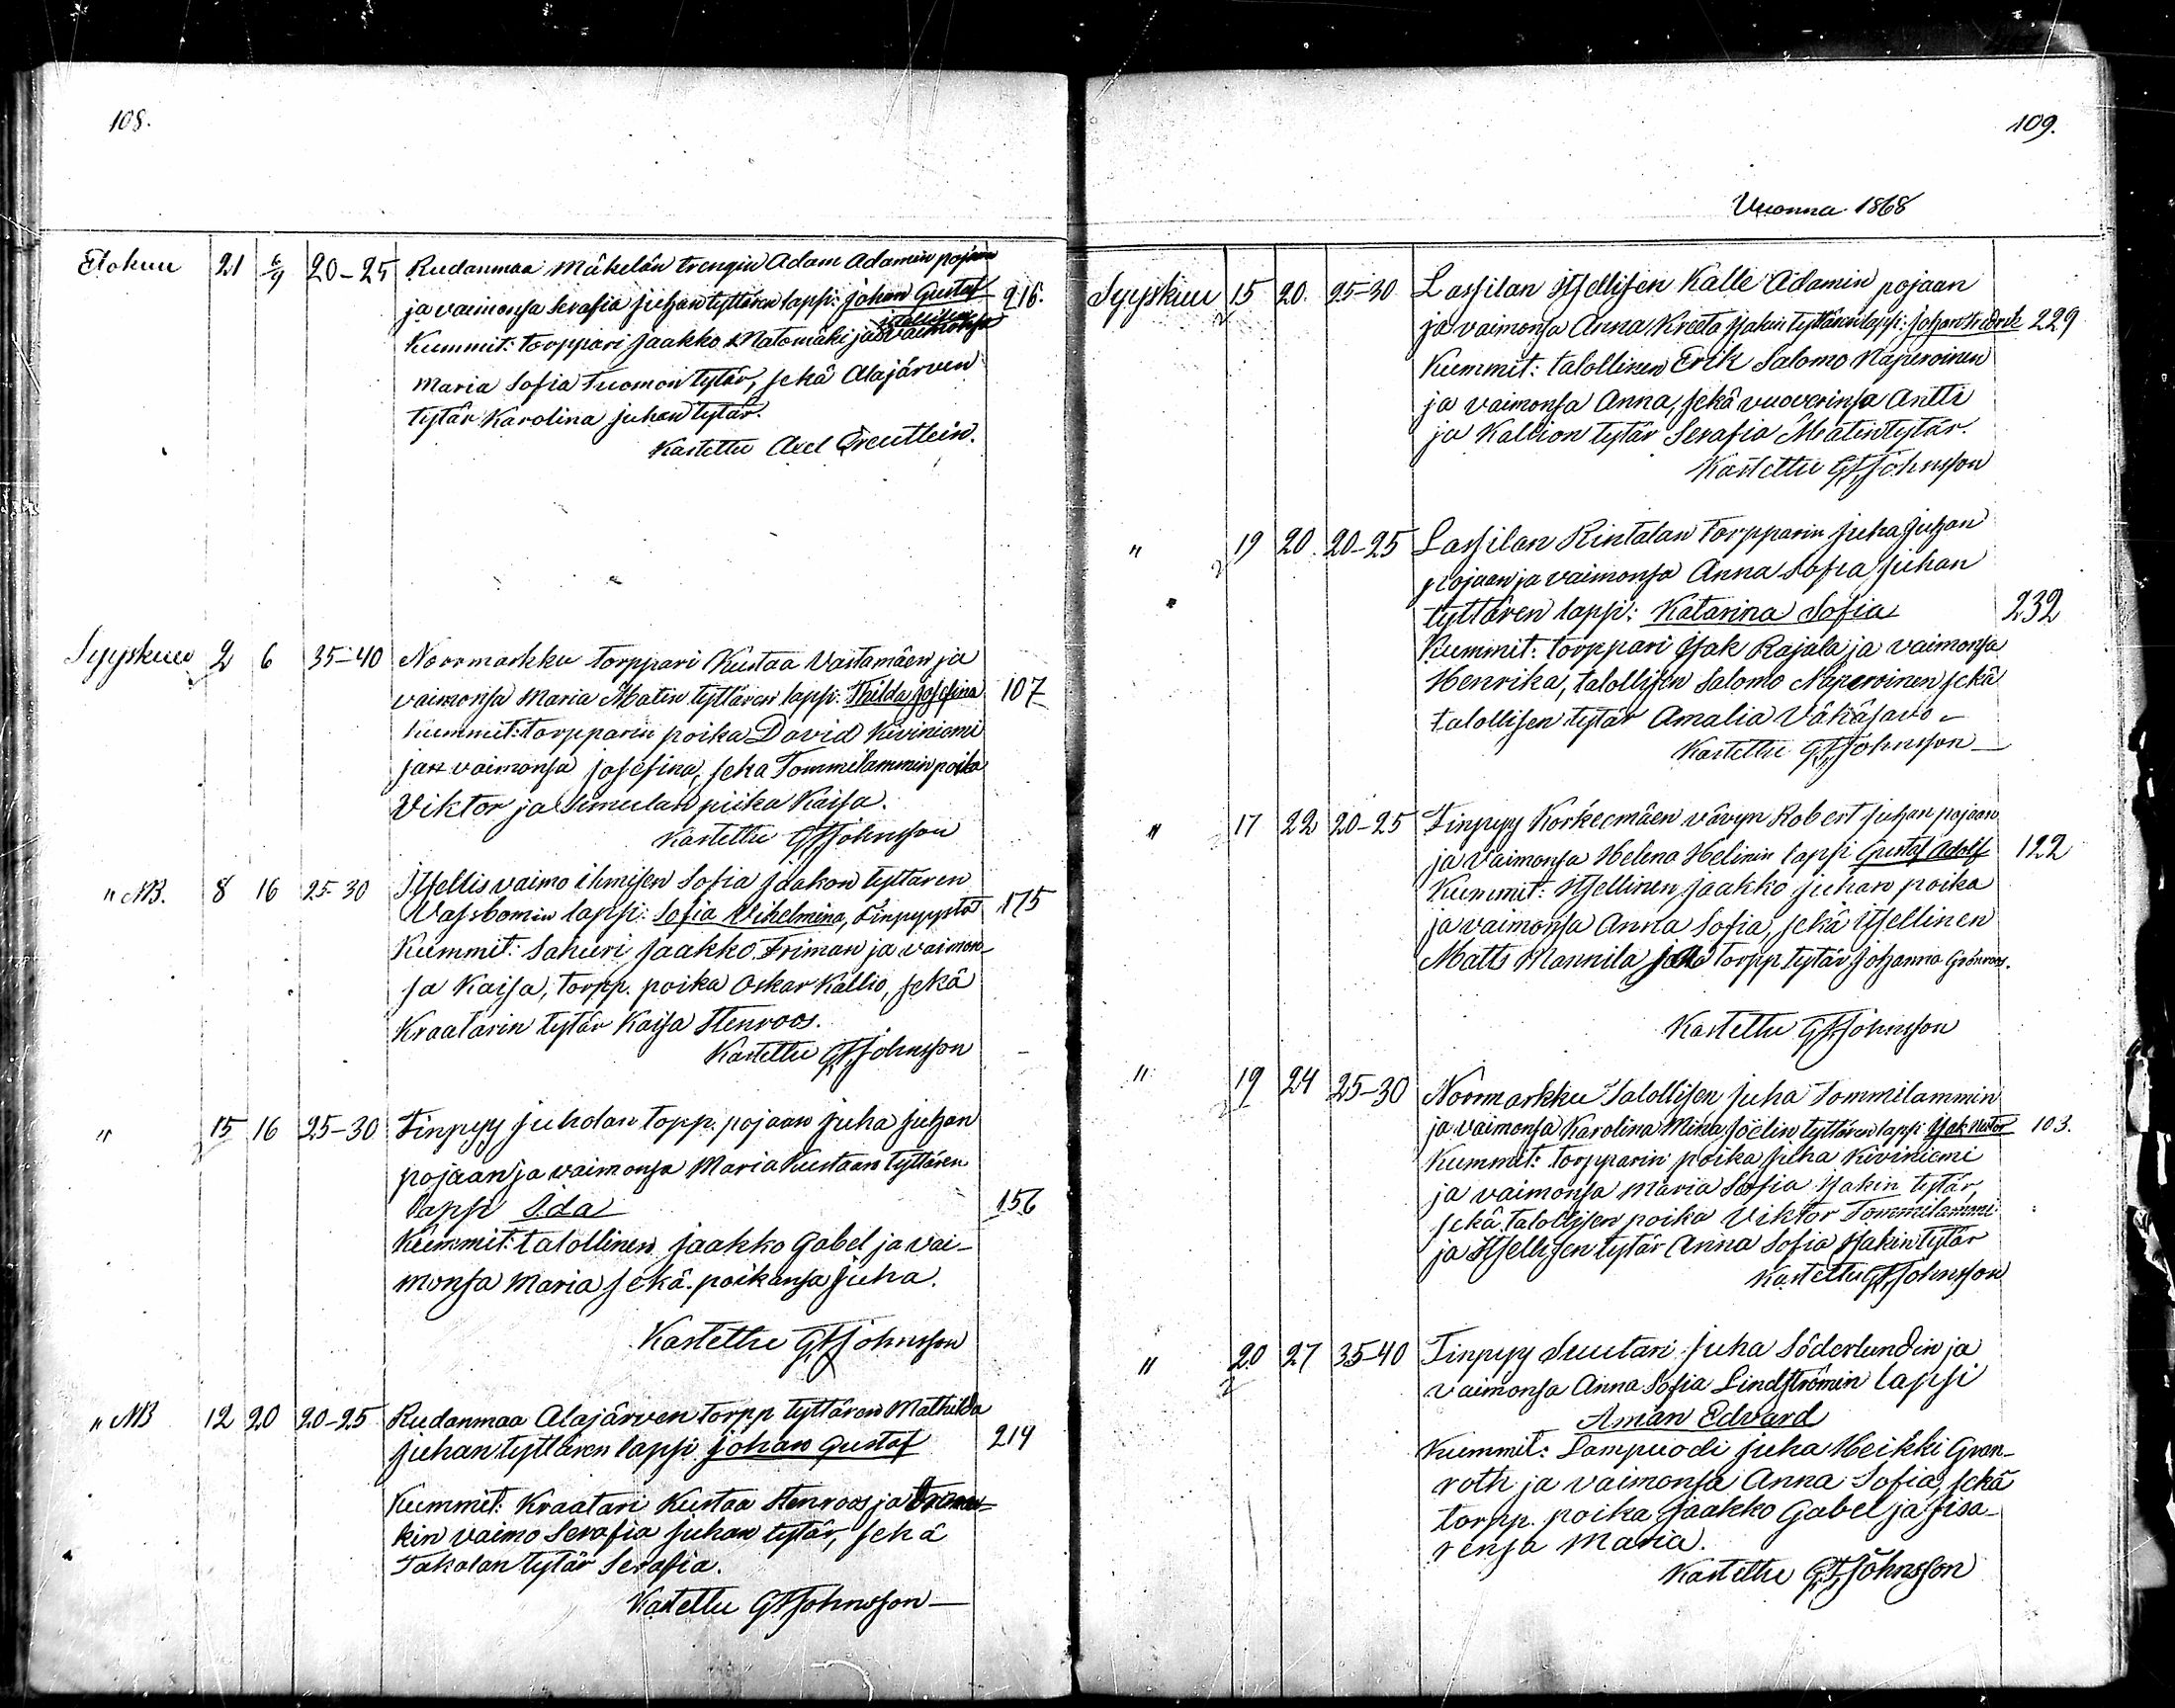 108.
Elokuu 21 6/9 20-25 Rudanmaa Mäkelän trengin Adam Adamin pojan
ja vaimonsa Serafia Juhan tyttären lapsi: Johan Gustaf 216.
Kummit: torppari Jaakko Natomäki ja vaimonsa
Maria Sofia Tuomon tytär, sekä Alajärven
tytär Karolina Juhan tytär.
Kastettu Axel Qreutlein.
Syyskuu 2 6 35-40 Noormarkku torppari Kustaa Vastamäen ja
vaimonsa Maria Matin tyttären lapsi: Hilda Josefina 107
kummit: torpparin poika David Kiviniemi
ja vaimonsa Josefina, seka Tommilammin poika
Viktor ja piika Kaisa.
Kastettu G F Johnsson
" NB. 8 16 25-30 Itsellis vaimo ihmisen Sofia Jaakon tyttären
Vassbomin lapsi: Sofia Vihelmina, Finpyystä 175
Kummit: Sahuri Jaakko Friman ja vaimon-
sa Kaisa, torpp. poika Oskar Kallio, sekä
Kraatarin tytär Kaisa Stenroos.
Kastettu G F Johnsson
" 15 16 25-30 Finpyy Juholan topp. pojaan Juha Juhan
pojaan ja vaimonsa Maria Kustaan tyttären
lapsi Ida 156
Kummit: talollinen Jaakko Gabel ja vai-
monsa Maria sekä poikansa Juha.
Kastettu G F Johnsson
" NB 12 20 20-25 Rudanmaa Alajärven torpp tyttären Mathilda
Juhan tyttären lapsi Johan Gustaf 214
Kummit: Kraatari Kustaa Stenroos ja
kin vaimo Serafia Juhan tytär, sekä
Takalan tytär Serafia.
Kastettu G F Johnsson
109.
Vuonna 1868
Syyskuu 15 20. 25-30 Lassilan Itsellisen Kalle Adamin pojaan
ja vaimonsa Anna Kreeta Isakin tyttären lapsi: Johan Fredrik 229
Kummit: talollinen Erik Salomo Näperoinen
ja vaimonsa Anna, sekä vuoverinsa Antti
ja Kallion tytär Serafia Matintytär.
Kastettu G F Johnsson
" 19 20. 20-25 Lassilan Rintalan Torpparin Juha Juhan
pojaan ja vaimonsa Anna Sofia Juhan
tyttären lapsi: Katarina Sofia 232
Kummit: torppari Isak Rajala ja vaimonsa
Henrika, talollisen Salomo Näperoinen sekä
talollisen tytär Amalia Väkäsavo -
Kastettu G F Johnsson
" 17 22 20-25 Finpyy Korkeemäen vävyn Robert Juhan pojaan
ja vaimonsa Helena Helinin lapsi Gustaf Adolf 122
Kummit: Itsellinen Jaakko Juhan poika
ja vaimonsa Anna Sofia, sekä itsellinen
Matts Mannila ja torpp. tytär Johanna Grönroos.
Kastettu G F Johnsson
" 19 24 25-30 Noormarkku Talollisen Juha Tommilammin
ja vaimonsa Karolina Mina Joelin tyttären lapsi Isak Nestor 103.
Kummit: torpparin poika Juha Kiviniemi
ja vaimonsa Maria Sofia Isakin tytär,
sekä talollisen poika Viktor Tommilammi
ja Itsellisen tytär Anna Sofia Isakin tytär
Kastettu G F Johnsson
" 20 27 35-40 Finpyy Suutari Juha Söderlundin ja
vaimonsa Anna Sofia Lindströmin lapsi
Aman Edvard
Kummit: Lampuodi Juha Heikki Gran-
roth ja vaimonsa Anna Sofia, sekä
torpp. poika Jaakko Gabel ja sisa-
rensa Maria.
Kastettu G F Johnsson